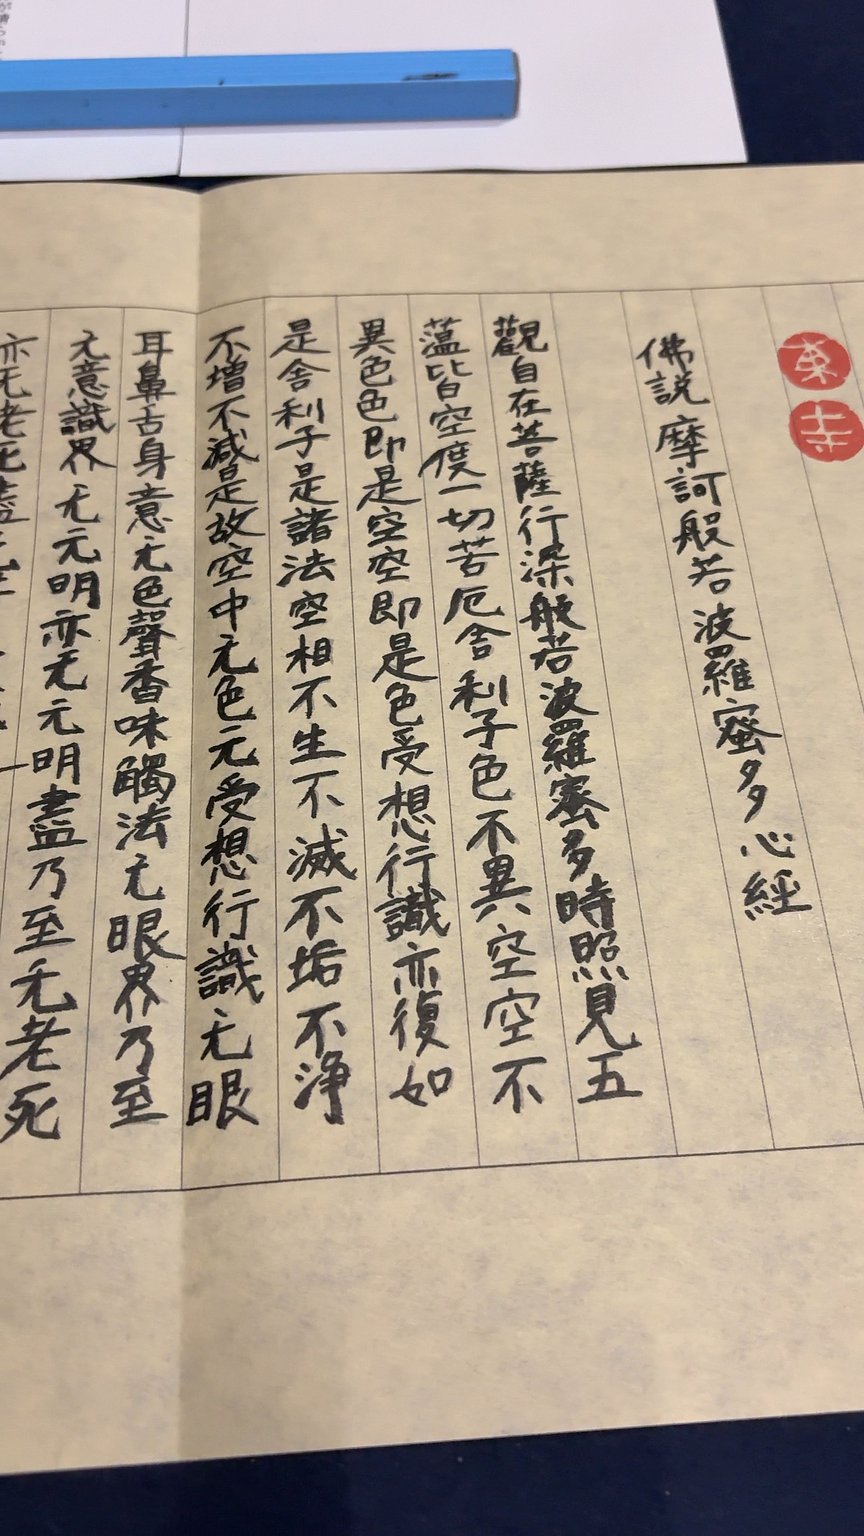 東寺
佛説摩訶般若波羅蜜多心經
觀自在菩薩行深般若波羅蜜多時照見五
蘊皆空度一切苦厄舎利子色不異空空不
異色色即是空空即是色受想行識亦復如
是舎利子是諸法空相不生不滅不垢不浄
不増不減是故空中无色无受想行識无眼
耳鼻舌身意无色聲香味觸法无眼界乃至
无意識界无无明亦无无明盡乃至无老死
亦无老死盡